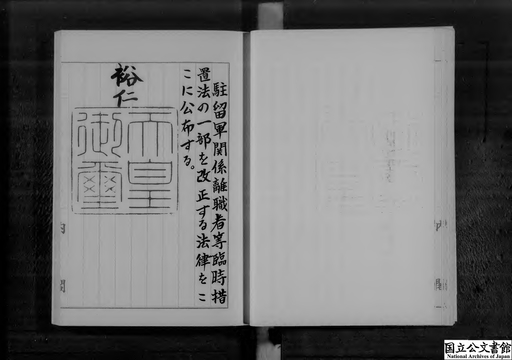 駐留軍関係離職者等臨時措
置法の一部を改正する法律をこ
こに公布する。
裕仁
天皇
御璽
内閣
国立公文書館
National Archives of Japan